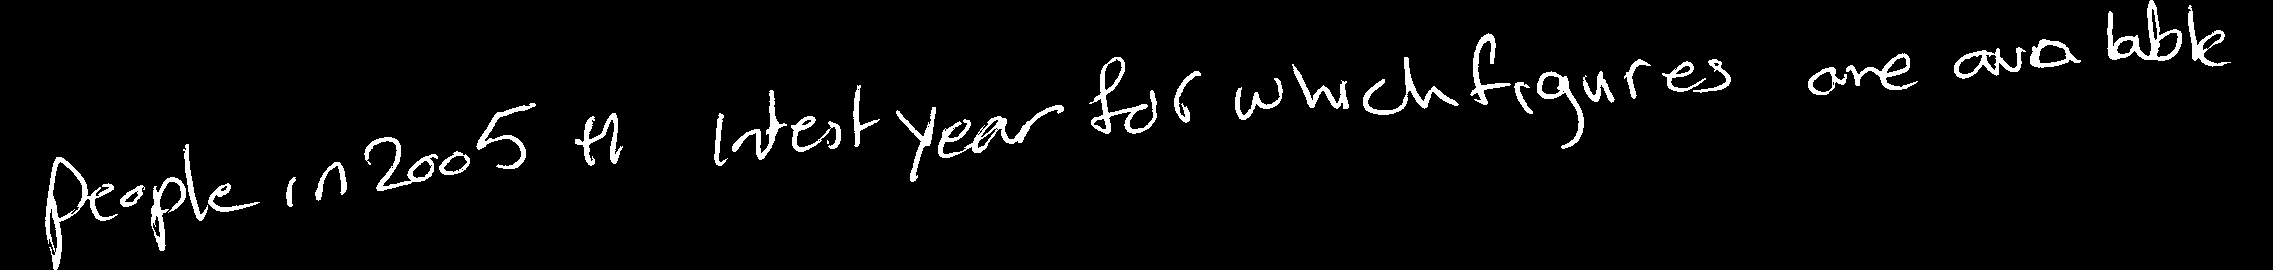 people in 2005 th latest year for which figures are available